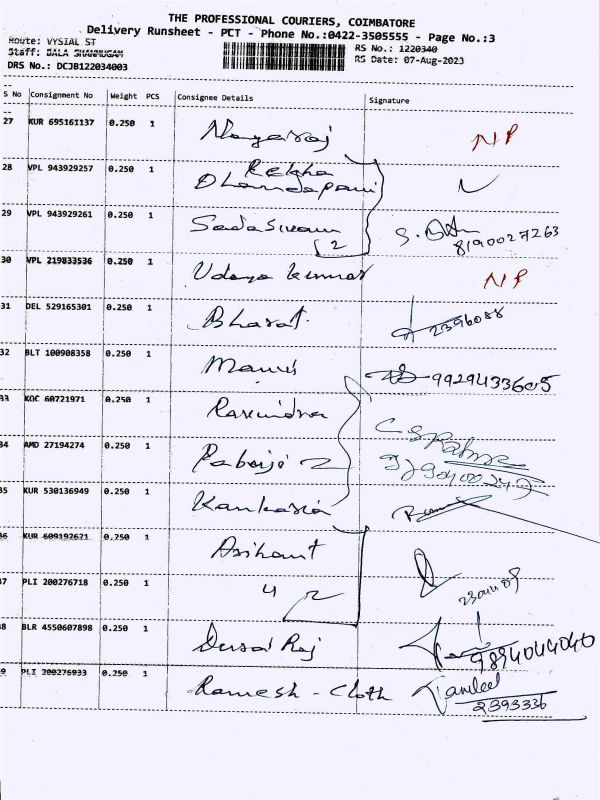 THE PROFESSIONAL COURIERS, COIMBATORE
Delivery Runsheet - PCT - Phone No.:0422-3505555 - Page No.:3
Route: VYSIAL ST
RS No.: 1220340
Staff: BALA SHANMUGAM
RS Date: 07-Aug-2023
DRS No.: DCJB122034003
S No Consignment No Weight PCS Consignee Details Signature
27 KUR 695161137 0.250 1 Nagaraj NP
28 VPL 943929257 0.250 1 Rekha Dhandapani
29 VPL 943929261 0.250 1 Sadasivam 2 8190027263
30 VPL 219833536 0.250 1 Udaya Kumar NP
31 DEL 529165301 0.250 1 Bharat 2396088
32 BLT 100908358 0.250 1 9929433605
33 KOC 60721971 0.250 1
34 AMD 27194274 0.250 1 2
35 KUR 530136949 0.250 1 Kankaria
36 KUR 609192621 0.250 1 Arihant
37 PLI 200276718 0.250 1 " 2
38 BLR 4550607898 0.250 1 Raj 9894044040
39 PLI 200276933 0.250 1 Ramesh - Cloth 2393336